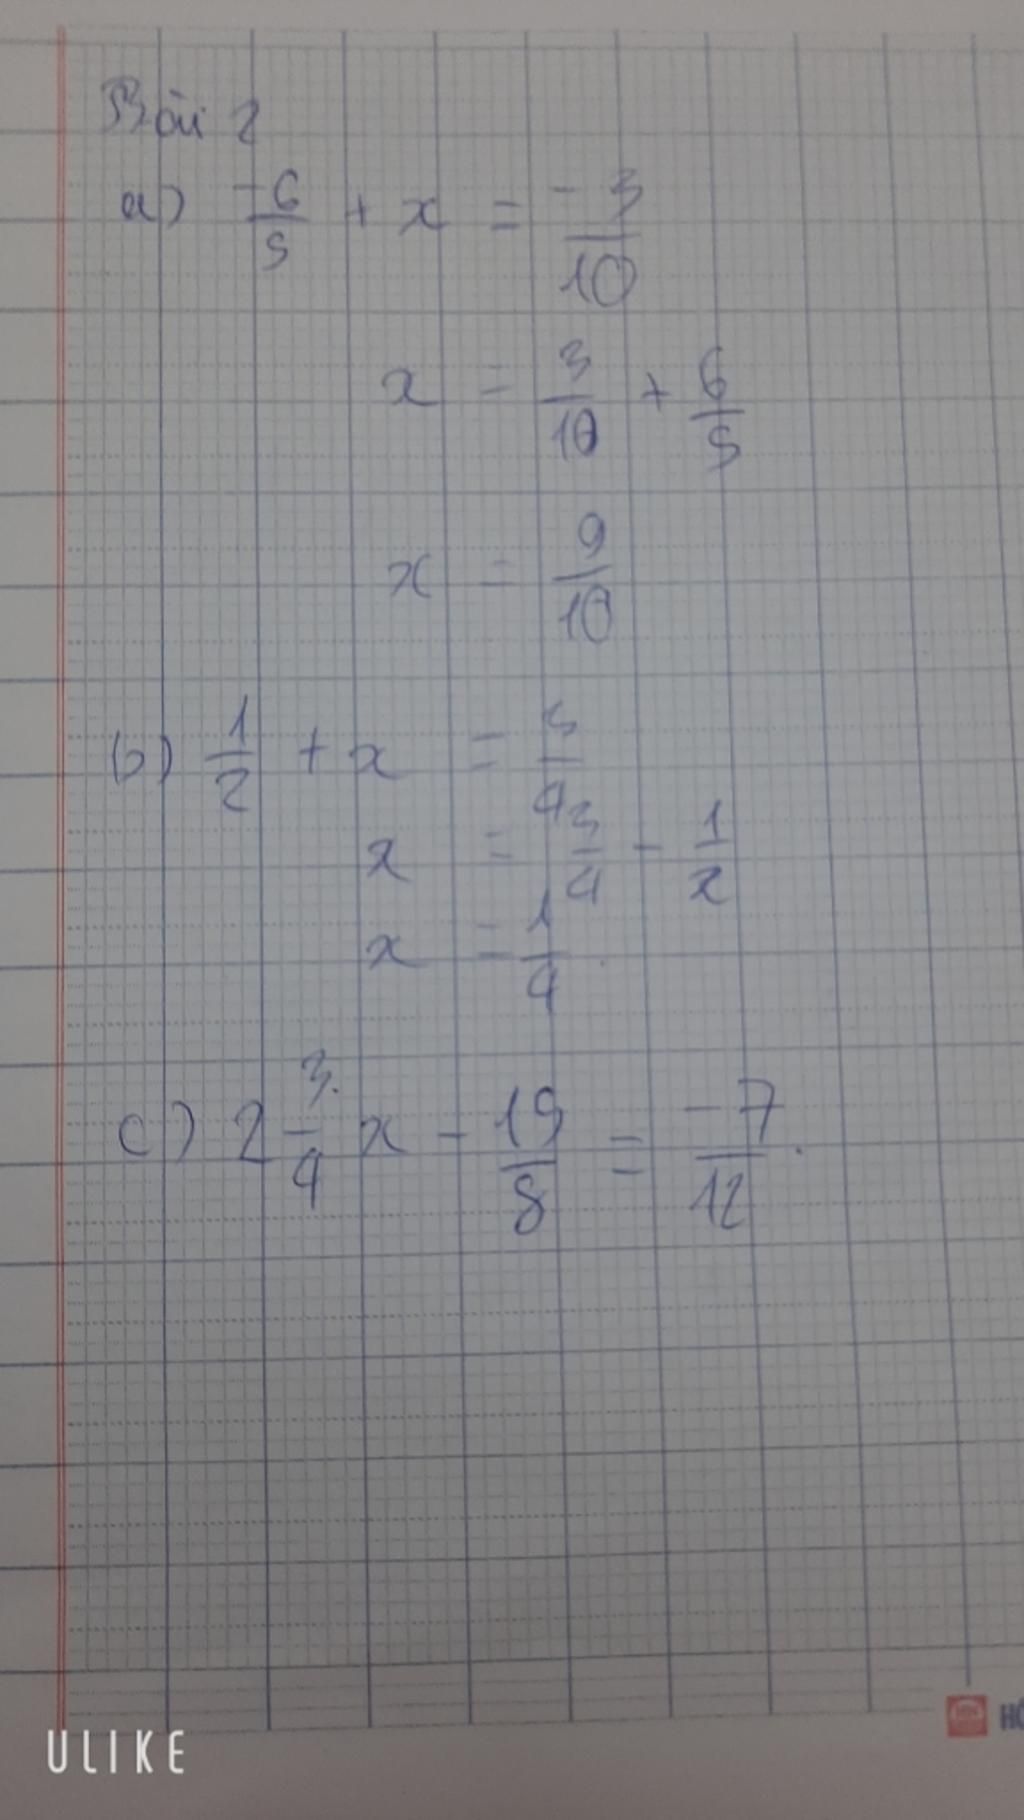 Bài 2
a) -6/5 + x = -3/10
x = 3/10 + 6/5
x = 9/10
b) 1/2 + x = 3/4
x = 3/4 - 1/2
x = 1/4
c) 2 3/4 x - 19/8 = -7/12.
ULIKE